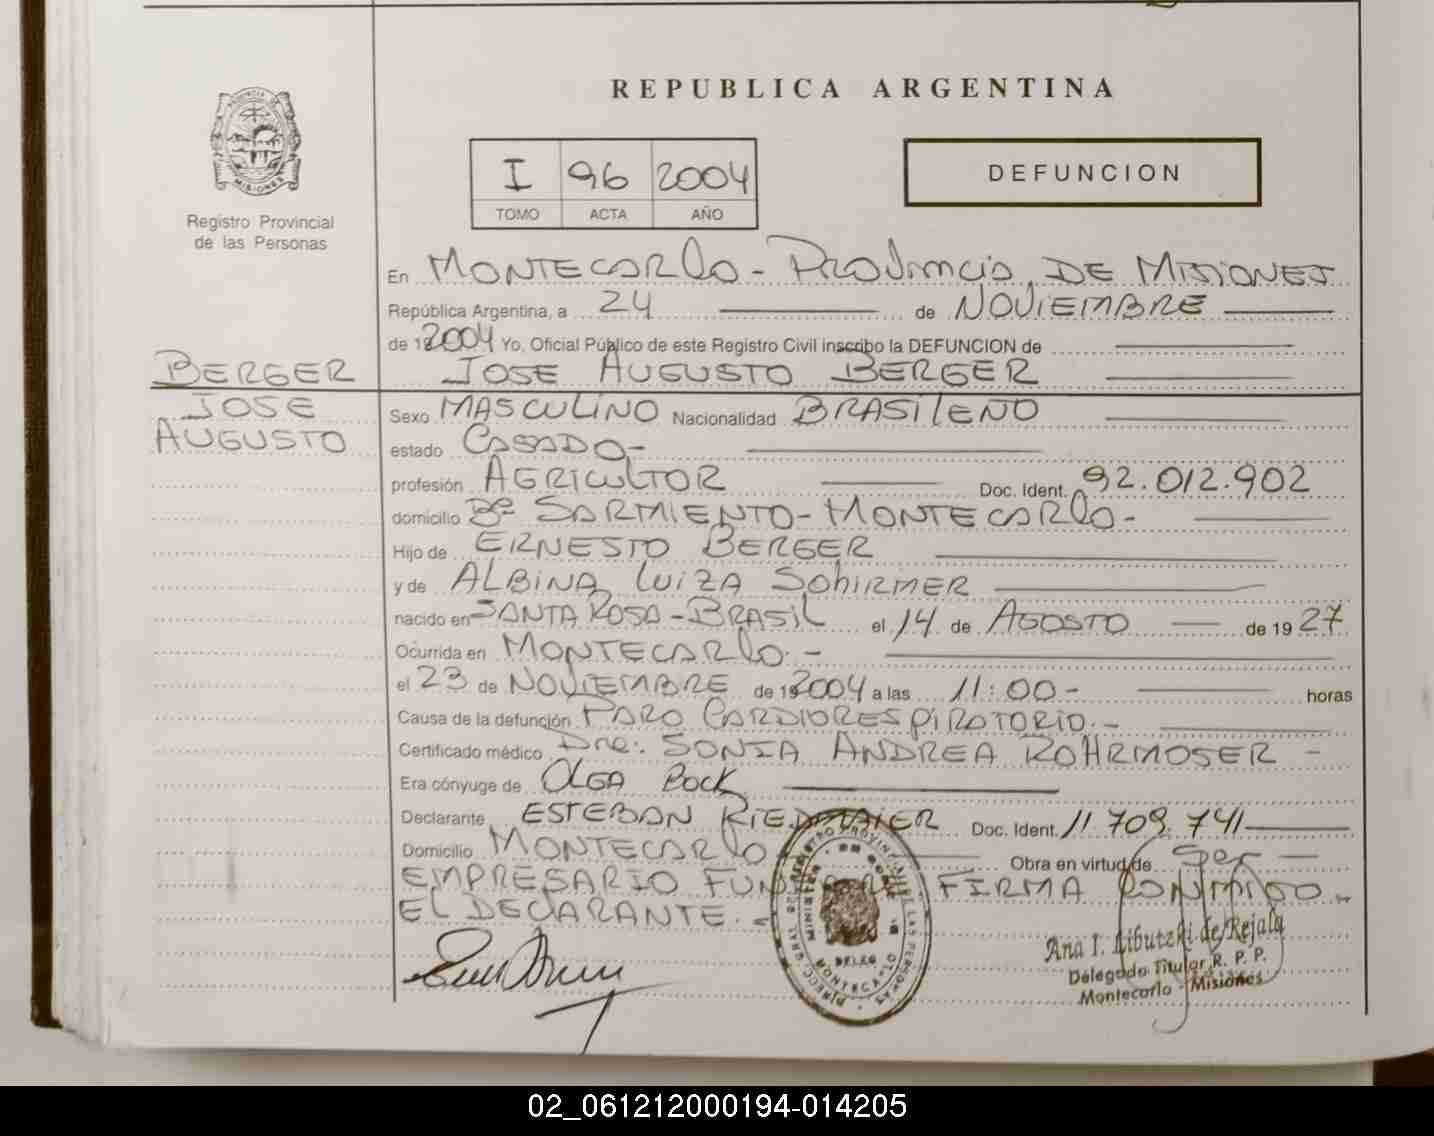 REPUBLICA ARGENTINA
PROVINCIA DE MISIONES
I 96 2004
TOMO ACTA AÑO
DEFUNCION
Registro Provincial
de las Personas
En MONTECARLO - PROVINCIA DE MISIONES
República Argentina, a 24 de NOVIEMBRE
de 2004 Yo, Oficial Público de este Registro Civil inscribo la DEFUNCION de
JOSE AUGUSTO BERGER
BERGER
JOSE
AUGUSTO
Sexo MASCULINO Nacionalidad BRASILEÑO
estado CASADO-
profesión AGRICULTOR Doc. Ident. 92.012.902
domicilio Bº SARMIENTO - MONTECARLO -
Hijo de ERNESTO BERGER
y de ALBINA LUIZA SCHIRMER
nacido en SANTA ROSA - BRASIL el 14 de AGOSTO de 1927
Ocurrida en MONTECARLO. -
el 23 de NOVIEMBRE de 2004 a las 11:00 - horas
Causa de la defunción PARO CARDIORESPIRATORIO. -
Certificado médico Dra: SONIA ANDREA ROHRMOSER -
Era cónyuge de OLGA BOCK
Declarante ESTEBAN RIEDMAIER Doc. Ident. 11.709.741
Domicilio MONTECARLO Obra en virtud de Ser
EMPRESARIO FUNEBRE FIRMA CONMIGO -
EL DECLARANTE. -
Ana I. Libutzki de Rejala
Delegado Titular R. P. P.
Montecarlo - Misiones
02_061212000194-014205